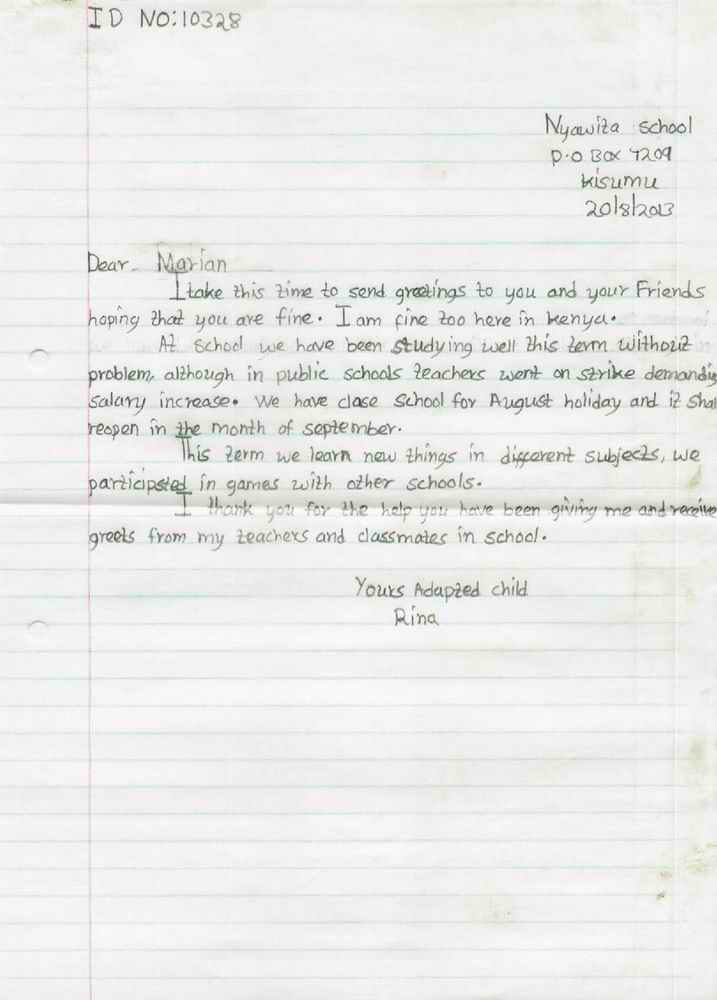 ID NO:10328
Nyawita school
P.O Box 7209
Kisumu
20/8/2013
Dear Marian
I take this time to send greetings to you and your Friends
hoping that you are fine. I am fine too here in kenya.
At school we have been studying well this term without
problem, although in public schools teachers went on strike demanding
salary increase. We have close school for August holiday and it shal
reopen in the month of september.
This term we learn new things in different subjects, we
participated in games with other schools.
I thank you for the help you have been giving me and receive
greets from my teachers and classmates in school.
Yours Adapted child
Rina